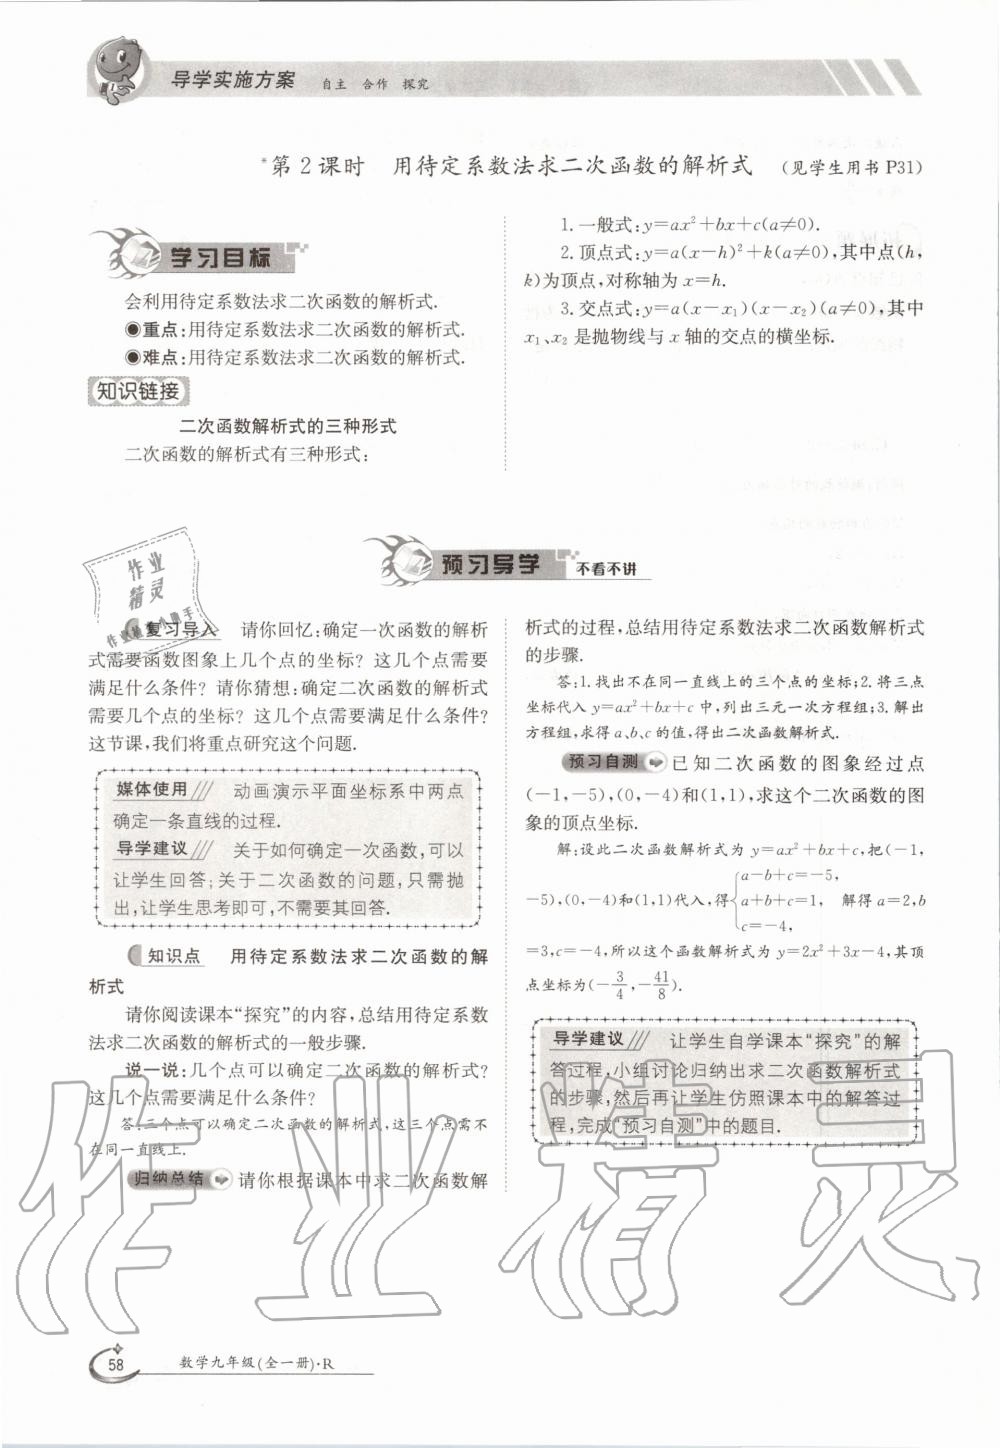 导学实施方案 自主 合作 探究
*第2课时 用待定系数法求二次函数的解析式 (见学生用书P31)
学习目标
会利用待定系数法求二次函数的解析式.
◉重点:用待定系数法求二次函数的解析式.
◉难点:用待定系数法求二次函数的解析式.
知识链接
二次函数解析式的三种形式
二次函数的解析式有三种形式:
1.一般式:y=ax²+bx+c(a≠0).
2.顶点式:y=a(x-h)²+k(a≠0),其中点(h,
k)为顶点,对称轴为x=h.
3.交点式:y=a(x-x₁)(x-x₂)(a≠0),其中
x₁、x₂是抛物线与x轴的交点的横坐标.
预习导学 不看不讲
作业
精灵
复习导入 请你回忆:确定一次函数的解析
式需要函数图象上几个点的坐标? 这几个点需要
满足什么条件? 请你猜想:确定二次函数的解析式
需要几个点的坐标? 这几个点需要满足什么条件?
这节课,我们将重点研究这个问题.
媒体使用/// 动画演示平面坐标系中两点
确定一条直线的过程.
导学建议/// 关于如何确定一次函数,可以
让学生回答;关于二次函数的问题,只需抛
出,让学生思考即可,不需要其回答.
知识点 用待定系数法求二次函数的解
析式
请你阅读课本“探究”的内容,总结用待定系数
法求二次函数的解析式的一般步骤.
说一说:几个点可以确定二次函数的解析式?
这几个点需要满足什么条件?
答:三个点可以确定二次函数的解析式,这三个点需不
在同一直线上.
归纳总结 请你根据课本中求二次函数解
析式的过程,总结用待定系数法求二次函数解析式
的步骤.
答:1.找出不在同一直线上的三个点的坐标;2.将三点
坐标代入y=ax²+bx+c中,列出三元一次方程组;3.解出
方程组,求得a、b、c的值,得出二次函数解析式.
预习自测 已知二次函数的图象经过点
(-1,-5),(0,-4)和(1,1),求这个二次函数的图
象的顶点坐标.
解:设此二次函数解析式为y=ax²+bx+c,把(-1,
-5),(0,-4)和(1,1)代入,得{a-b+c=-5, a+b+c=1, c=-4, 解得a=2,b
=3,c=-4,所以这个函数解析式为y=2x²+3x-4,其顶
点坐标为(-3/4,-41/8).
导学建议/// 让学生自学课本“探究”的解
答过程,小组讨论归纳出求二次函数解析式
的步骤,然后再让学生仿照课本中的解答过
程,完成“预习自测”中的题目.
作业精灵
58 数学九年级(全一册)·R